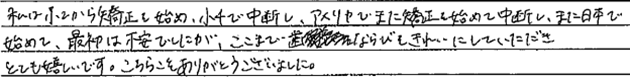 私は小2から矯正を始め、小4で中断し、アメリカでまた矯正を始めて中断し、また日本で
始めて、最初は不安でしたが、ここまで歯ならびもきれいにしていただき
とても嬉しいです。こちらこそありがとうございました。